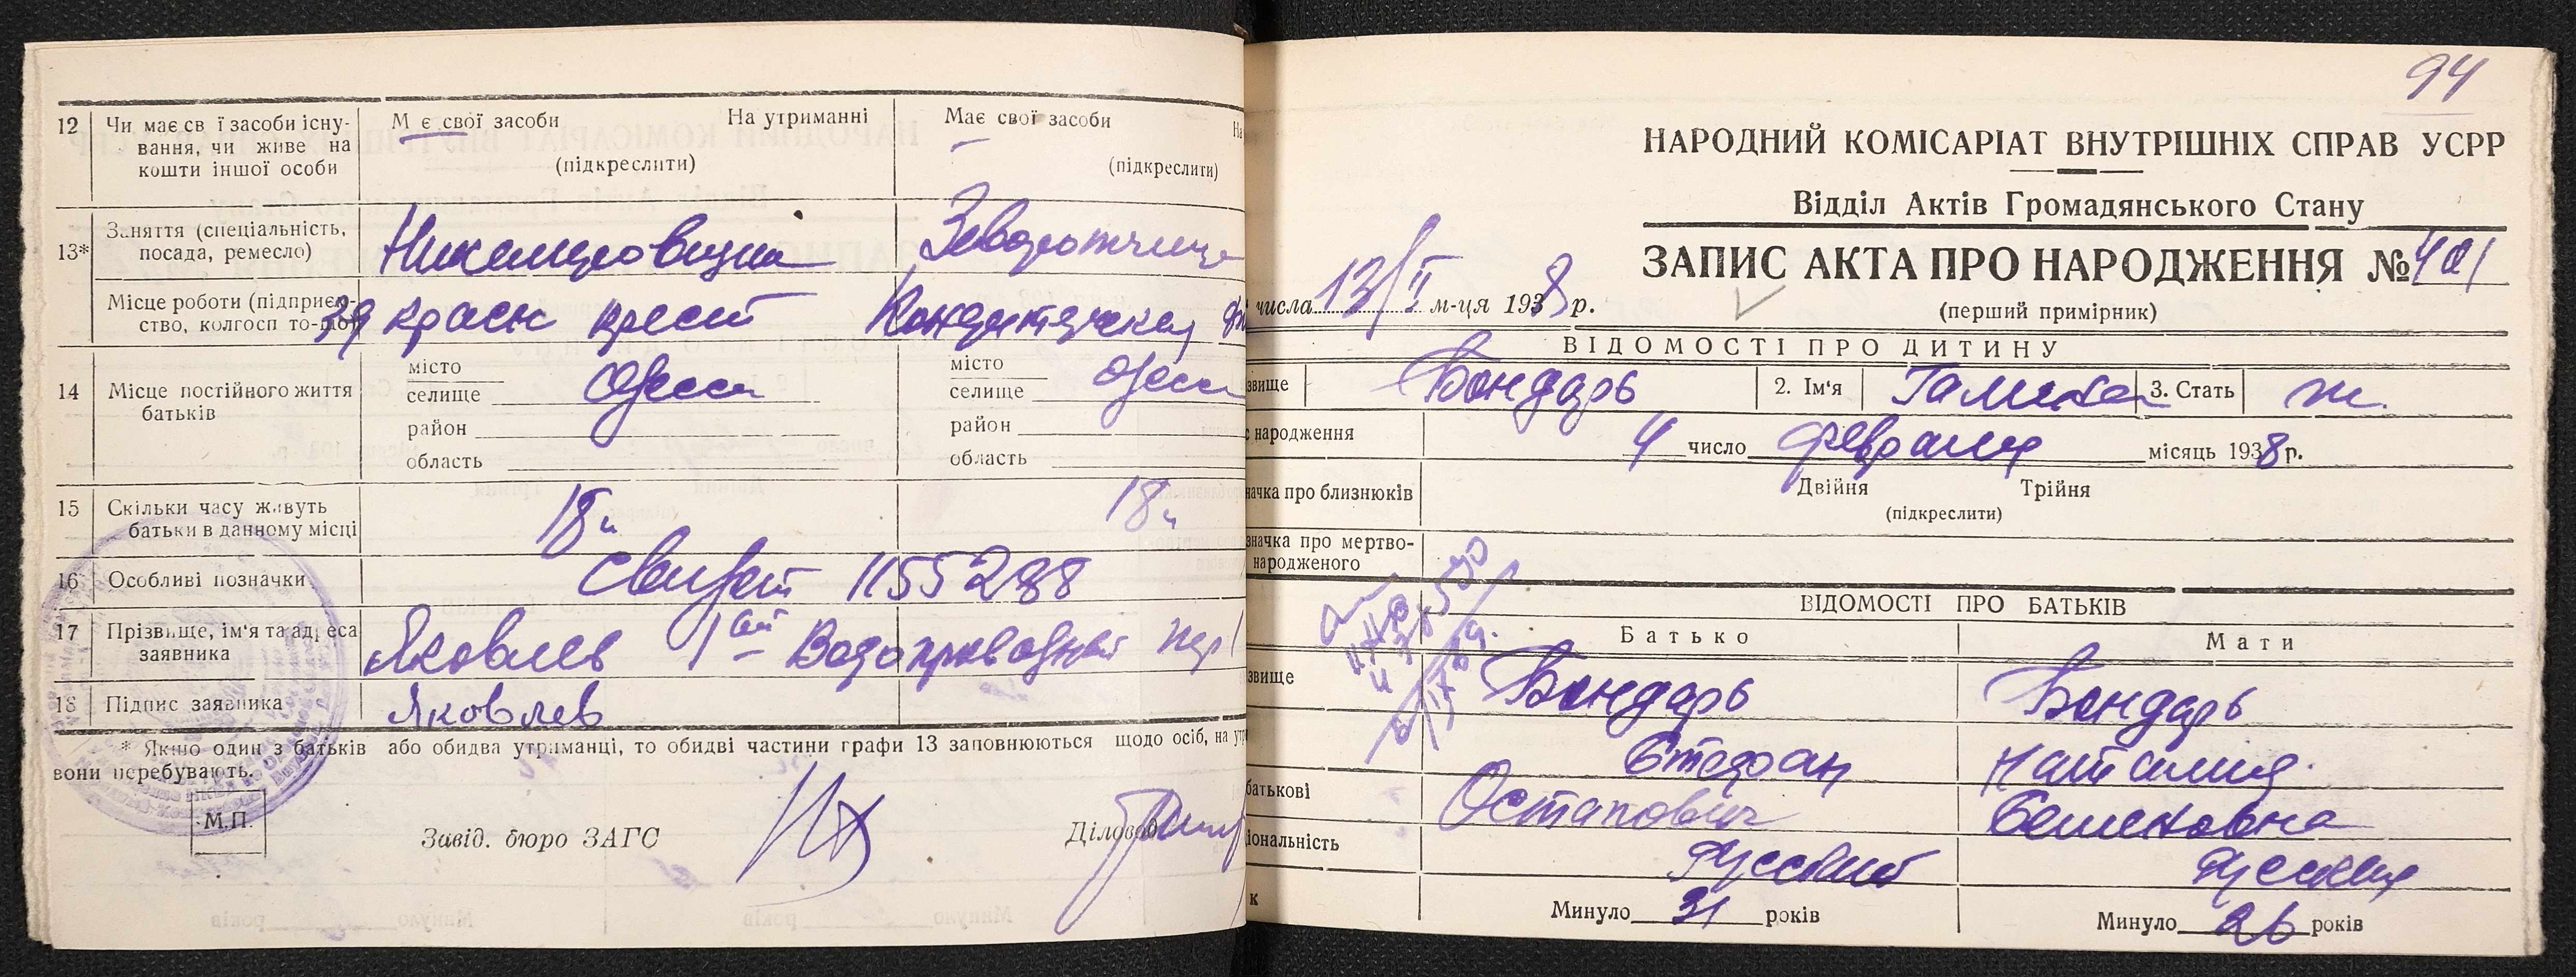 12
Чи має св ї засоби існу-
вання, чи живе на
кошти іншої особи
М є свої засоби
На утриманні
(підкреслити)
Має свої засоби
На
(підкреслити)
13*
Заняття (спеціальність,
посада, ремесло)
Місце роботи (підприєм-
ство, колгосп то-що)
39 красн крест
14
Місце постійного життя
батьків
місто
селище Одесса
район
область
місто
селище Одесса
район
область
15
Скільки часу живуть
батьки в данному місці
18 л
18 л
16
Особливі позначки
1155288
17
Прізвище, ім‘я та адреса
заявника
Яковлев 1ый Водопроводный пер
18
Підпис заявника
Яковлев
* Якщо один з батьків або обидва утриманці, то обидві частини графи 13 заповнюються щодо осіб, на утр
вони перебувають.
М.П.
Завід. бюро ЗАГС
Діловод
94
НАРОДНИЙ КОМІСАРІАТ ВНУТРІШНІХ СПРАВ УСРР
Відділ Актів Громадянського Стану
ЗАПИС АКТА ПРО НАРОДЖЕННЯ № 401
числа 13/II м-ця 1938 р.
(перший примірник)
ВІДОМОСТІ ПРО ДИТИНУ
звище Бондарь 2. Ім‘я Галина 3. Стать ж.
с народження 4 число февраля місяць 1938 р.
начка про близнюків
Двійня Трійня
(підкреслити)
значка про мертво-
народженого
ВІДОМОСТІ ПРО БАТЬКІВ
Батько
Мати
звище Бондарь Бондарь
Стефан Наталия
батькові Остапович Семеновна
іональність Русский Русская
к Минуло 31 років Минуло 26 років